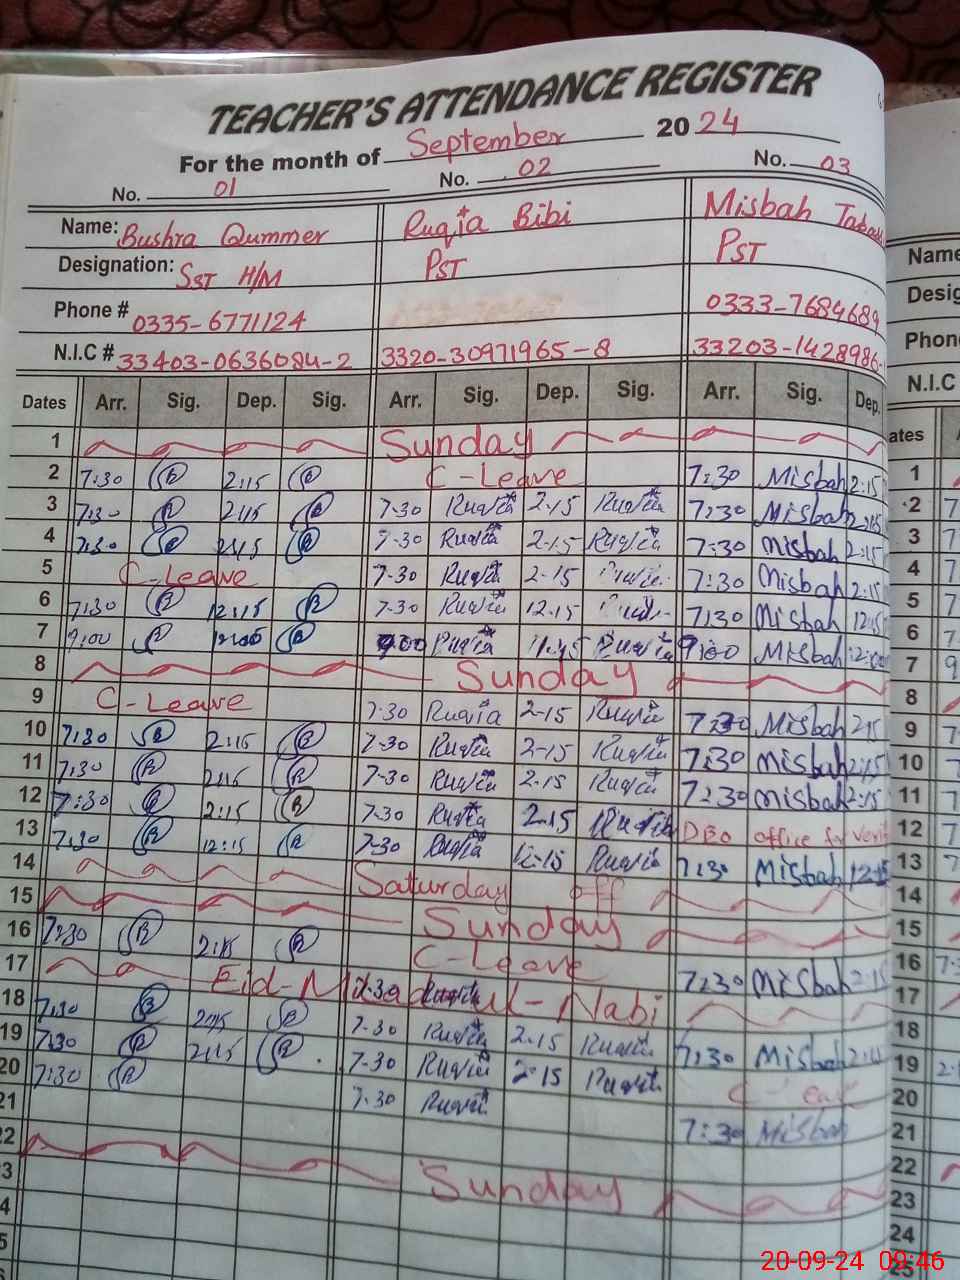 TEACHER'S ATTENDANCE REGISTER
For the month of September 2024
No. 01 No. 02 No. 03
Name: Bushra Qummer Ruqia Bibi Misbah
Designation: SST H/M PST PST
Phone # 0335-6771124 0333-7684689
N.I.C # 33403-0636084-2 3320-30971965-8 33203-1428986-
Dates Arr. Sig. Dep. Sig. Arr. Sig. Dep. Sig. Arr. Sig. Dep.
1 Sunday
2 7:30 2:15 C-Leave 7:30 Misbah 2:15
3 7:30 2:15 7-30 Ruqia 2-15 Ruqia 7:30 Misbah 2:15
4 7:30 2:15 7-30 Ruqia 2-15 Ruqia 7:30 Misbah 2:15
5 C-Leave 7-30 Ruqia 2-15 Ruqia 7:30 Misbah 2:15
6 7:30 12:15 7-30 Ruqia 12-15 7:30 Misbah 12:15
7 9:00 12:00 9:00 Ruqia 11:45 Ruqia 9:00 Misbah 12:00
8 Sunday
9 C-Leave 7-30 Ruqia 2-15 Ruqia 7:30 Misbah 2:15
10 7:30 2:15 7-30 Ruqia 2-15 Ruqia 7:30 Misbah 2:15
11 7:30 2:15 7-30 Ruqia 2-15 Ruqia 7:30 Misbah 2:15
12 7:30 2:15 7-30 Ruqia 2-15 Ruqia DEO office for
13 7:30 12:15 7-30 Ruqia 12-15 Ruqia 7:30 Misbah 12:15
14 Saturday off
15 Sunday
16 7:30 2:15 C-Leave 7:30 Misbah 2:15
17 Eid-Milad ul-Nabi
18 7:30 2:15 7-30 Ruqia 2-15 Ruqia 7:30 Misbah
19 7:30 2:15 7-30 Ruqia 2-15 Ruqia
20 7:30 7-30 Ruqia 7:30 Misbah
21
22 Sunday
Name
Phone
N.I.C
1
2
3
4
5
6
7
8
9
10
11
12
13
14
15
16
17
18
19
20
21
22
23
24
25
20-09-24 09:46